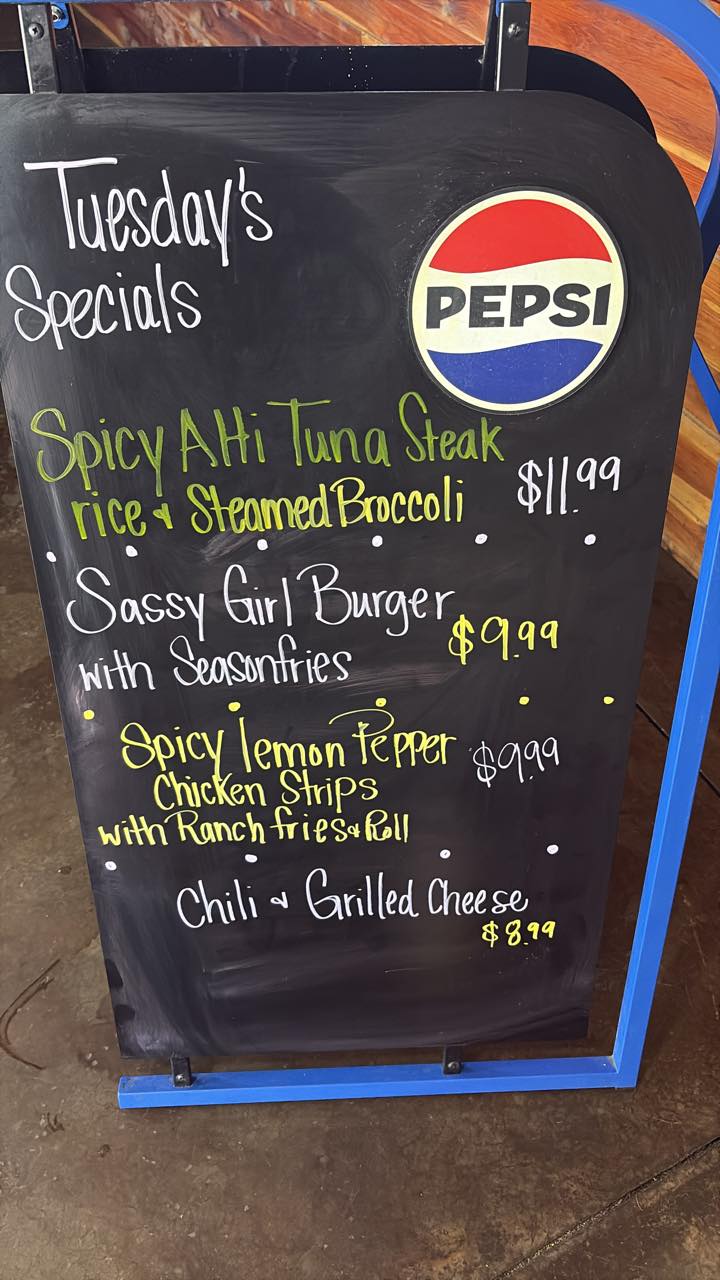 Tuesday's
Specials
PEPSI
Spicy AHi Tuna Steak
rice & Steamed Broccoli $11.99
Sassy Girl Burger
with Seasonfries $9.99
Spicy lemon Pepper $9.99
Chicken Strips
with Ranch fries & Roll
Chili & Grilled Cheese
$8.99